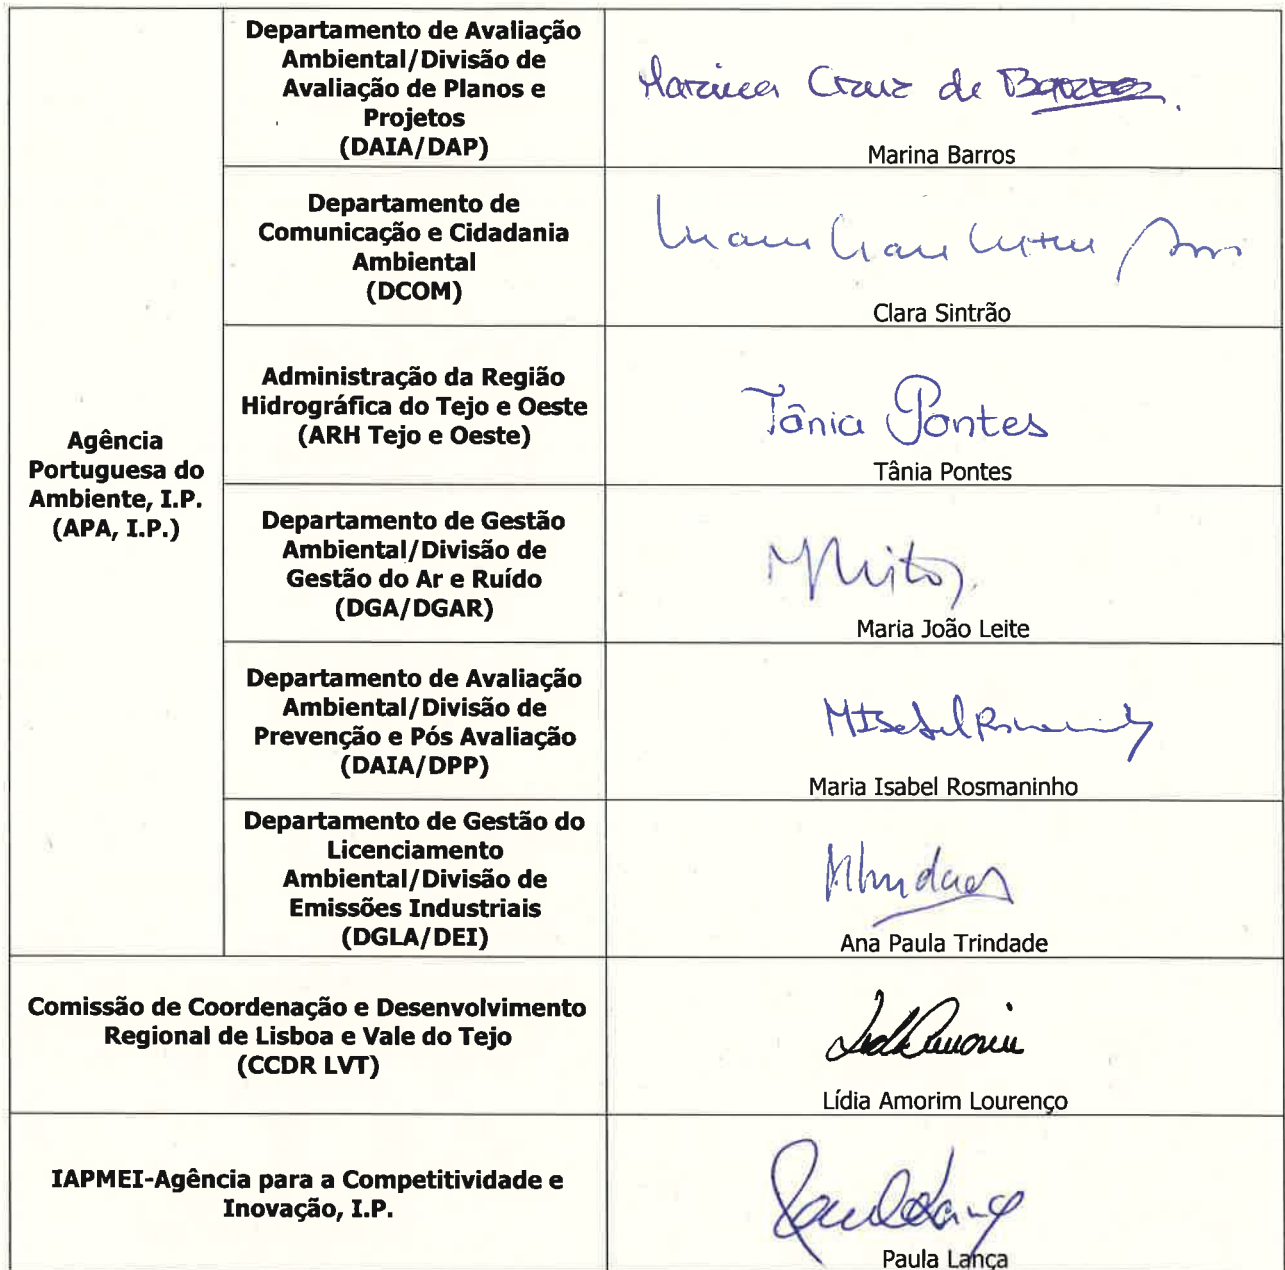 Departamento de Avaliação
Ambiental/Divisão de
Avaliação de Planos e
Projetos
(DAIA/DAP)
Marina Cruz de Barros
Marina Barros
Departamento de
Comunicação e Cidadania
Ambiental
(DCOM)
Clara Sintrão
Administração da Região
Hidrográfica do Tejo e Oeste
(ARH Tejo e Oeste)
Tânia Pontes
Tânia Pontes
Agência
Portuguesa do
Ambiente, I.P.
(APA, I.P.)
Departamento de Gestão
Ambiental/Divisão de
Gestão do Ar e Ruído
(DGA/DGAR)
Maria João Leite
Departamento de Avaliação
Ambiental/Divisão de
Prevenção e Pós Avaliação
(DAIA/DPP)
Maria Isabel Rosmaninho
Departamento de Gestão do
Licenciamento
Ambiental/Divisão de
Emissões Industriais
(DGLA/DEI)
Ana Paula Trindade
Comissão de Coordenação e Desenvolvimento
Regional de Lisboa e Vale do Tejo
(CCDR LVT)
Lídia Amorim Lourenço
IAPMEI-Agência para a Competitividade e
Inovação, I.P.
Paula Lança